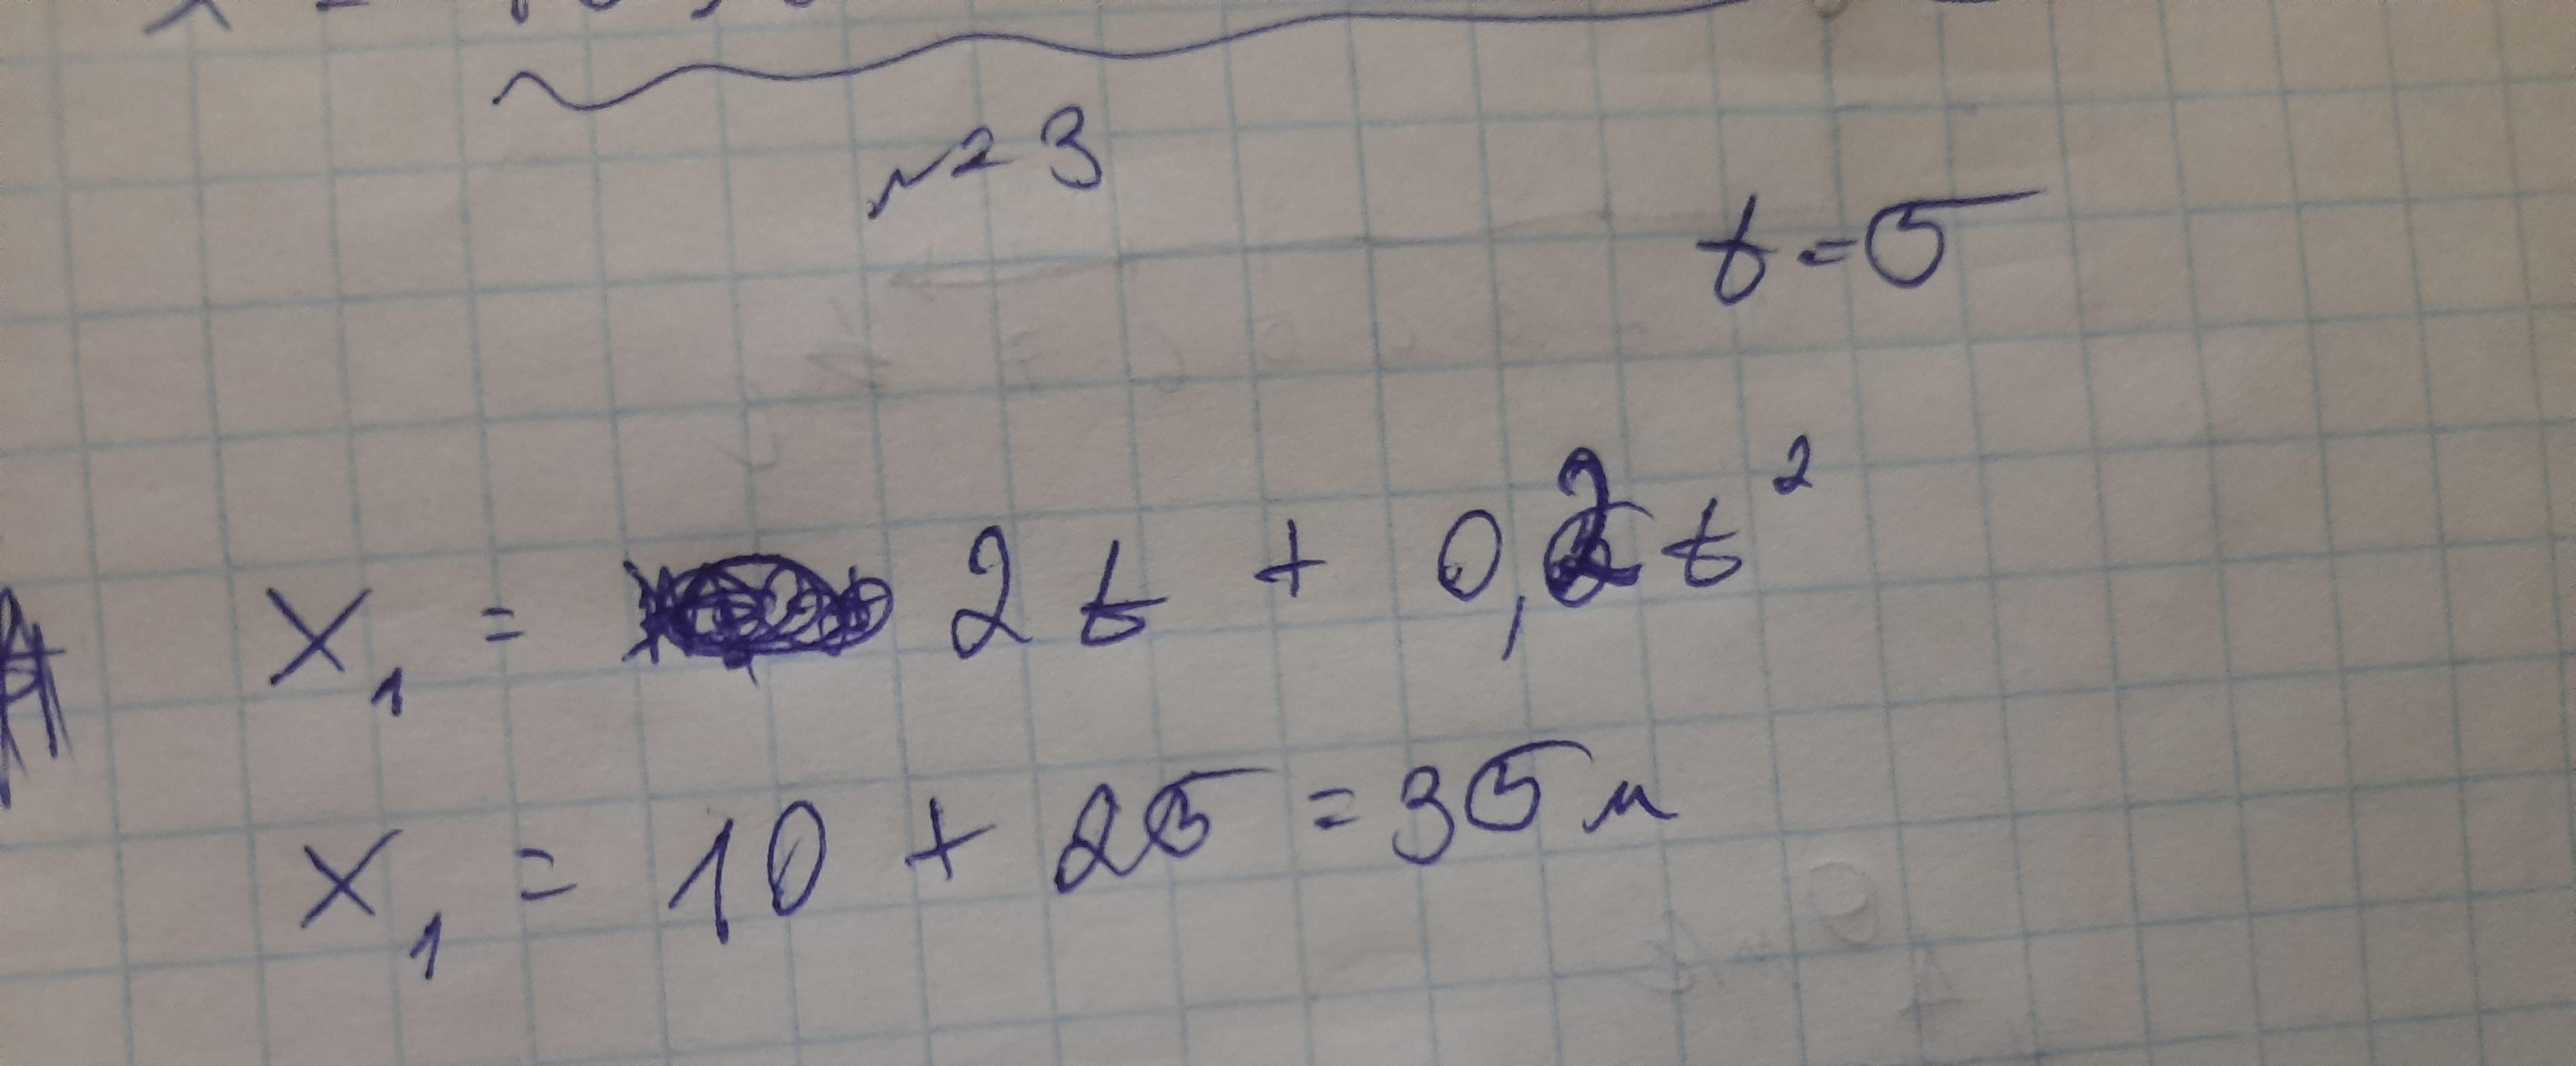 № 3
t = 5
x₁ = 2t + 0,2t²
x₁ = 10 + 25 = 35 м